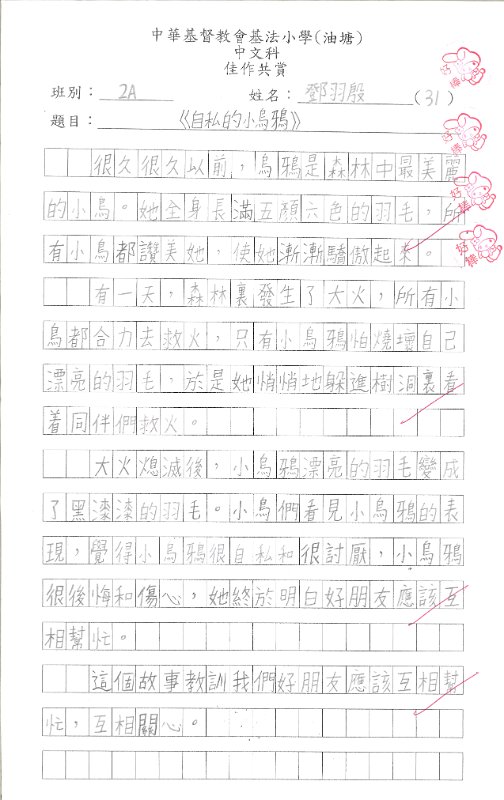 中華基督教會基法小學(油塘)
中文科
佳作共賞
班別：2A 姓名：鄧羽殷(31)
題目：《自私的小烏鴉》
很久很久以前，烏鴉是森林中最美麗
的小鳥。她全身長滿五顏六色的羽毛，所
有小鳥都讚美她，使她漸漸驕傲起來。
有一天，森林裏發生了大火，所有小
鳥都合力去救火，只有小烏鴉怕燒壞自己
漂亮的羽毛，於是她悄悄地躲進樹洞裏看
着同伴們救火。
大火熄滅後，小烏鴉漂亮的羽毛變成
了黑漆漆的羽毛。小鳥們看見小烏鴉的表
現，覺得小烏鴉很自私和很討厭，小烏鴉
很後悔和傷心，她終於明白好朋友應該互
相幫忙。
這個故事教訓我們好朋友應該互相幫
忙，互相關心。
好棒
好棒
好棒
好棒